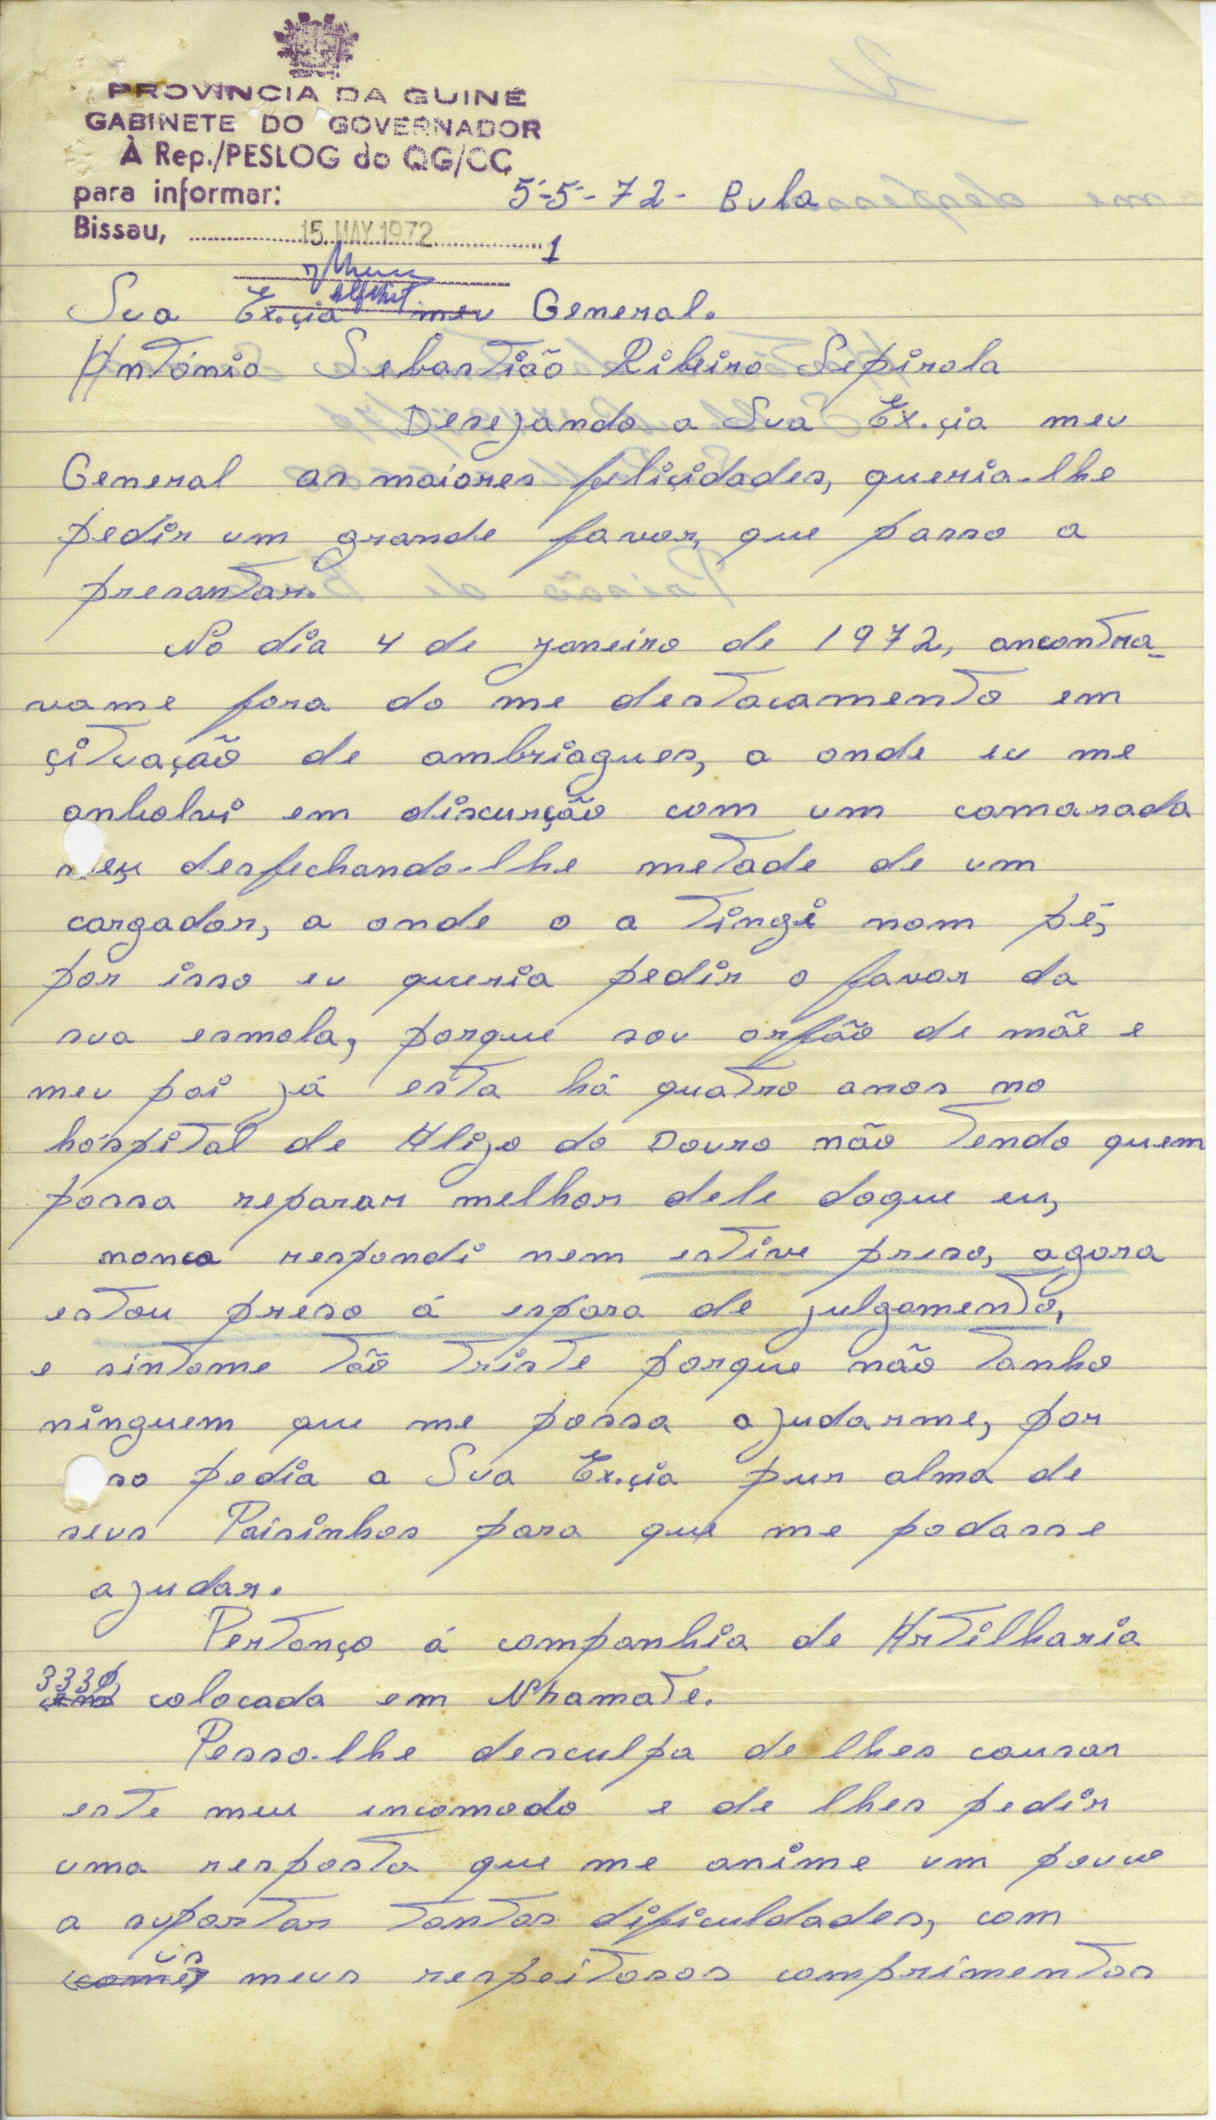 PROVINCIA DA GUINÉ
GABINETE DO GOVERNADOR
À Rep./PESLOG do QG/CC
para informar:
5-5-72- Bula
Bissau, 15. MAY. 1972
1
Sua Ex.çia meu General.
António Sebastião Ribeiro Sepinola
Desejando a Sua Ex.çia meu
General as maiores feliçidades, queria-lhe
pedir um grande favor, que passo a
presantar.
No dia 4 de janeiro de 1972, ancontra-
vame fora do me destacamento em
çituação de ambriagues, a onde eu me
anbolvi em discurção com um camarada
meu desfechando-lhe metade de um
cargador, a onde o a tingi nom pé,
por isso eu queria pedir o favor da
sua esmola, porque sou orfão de mãe e
meu pai já esta há quatro anos no
hóspital de Alijo do Douro não tendo quem
possa reparar melhor dele doque eu,
nonca respondi nem estive preso, agora
estou preso á espara de julgamento,
e sintome tão triste porque não tanho
ninguem que me possa ajudarme, por
so pedia a Sua Ex.çia pur alma de
seus Paisinhos para que me podasse
ajudar.
Pertanço á companhia de Artilharia
3330 colocada em Nhamate.
Pesso-lhe desculpa de lhes causar
este meu incomodo e de lhes pedir
uma resposta que me anime um pouco
a suportar tantas dificuldades, com
us meus respeitosos comprimentos